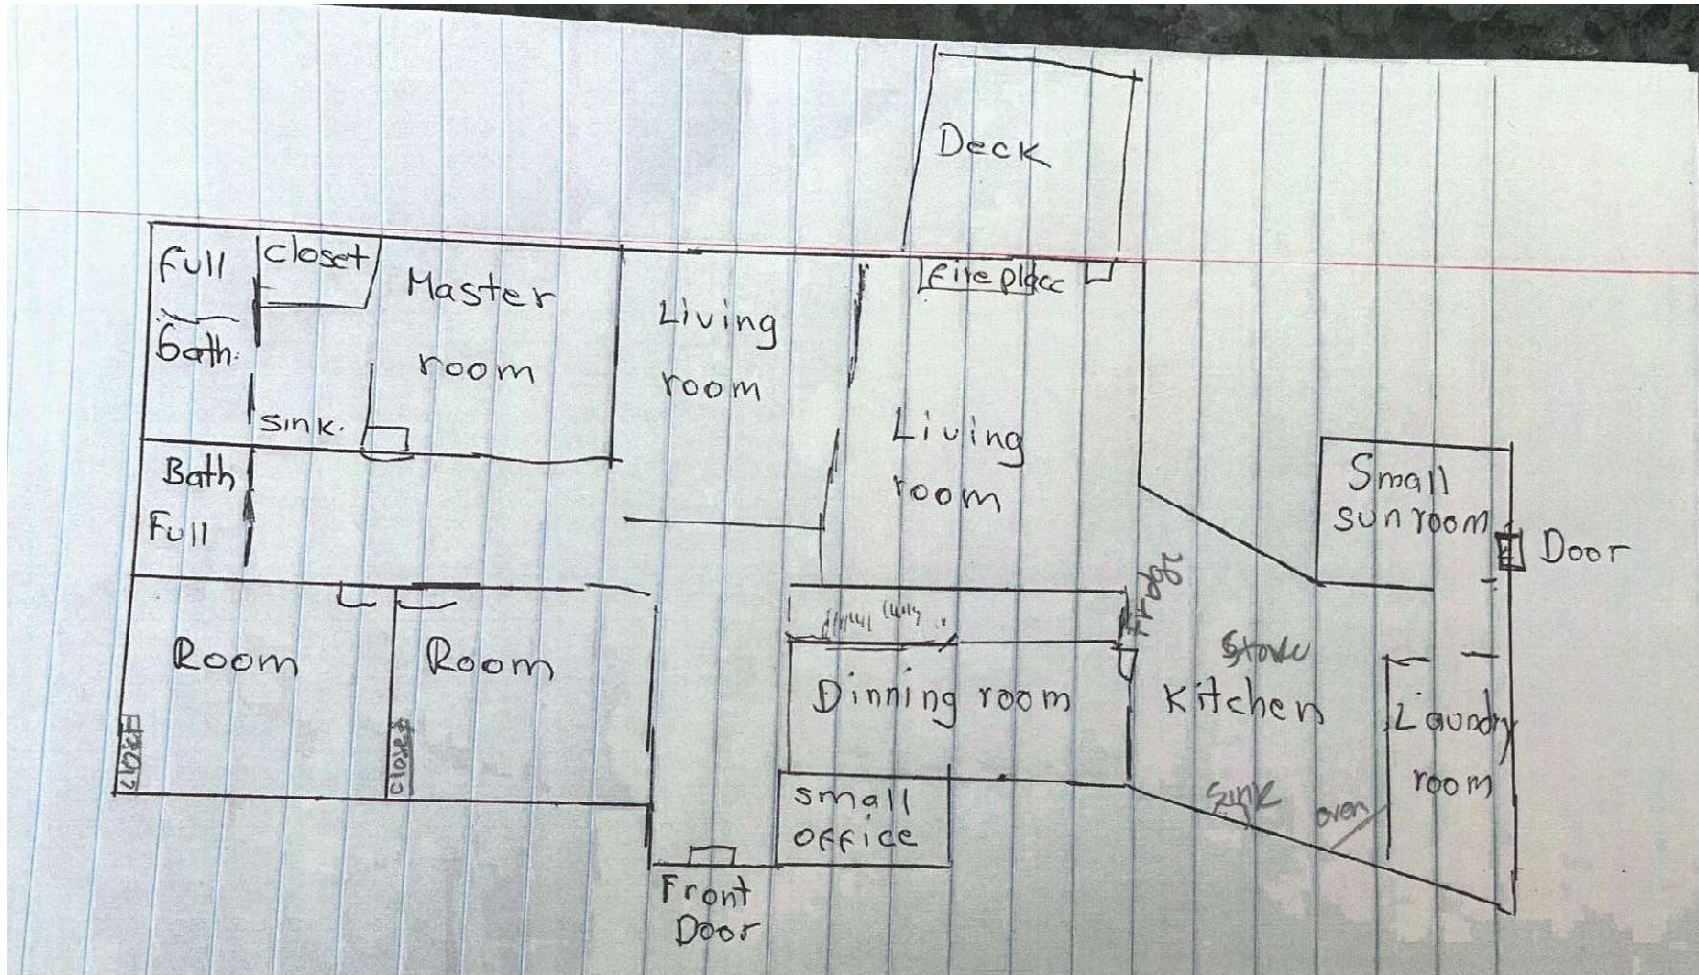 Deck
Full
Bath.
Closet
Master
room
Sink.
Living
room
fire place
Living
room
Bath
Full
Small
sun room
Door
Room
Room
Closet
Dinning room
Stove
Kitchen
Laundry
room
Sink
oven
small
office
Front
Door